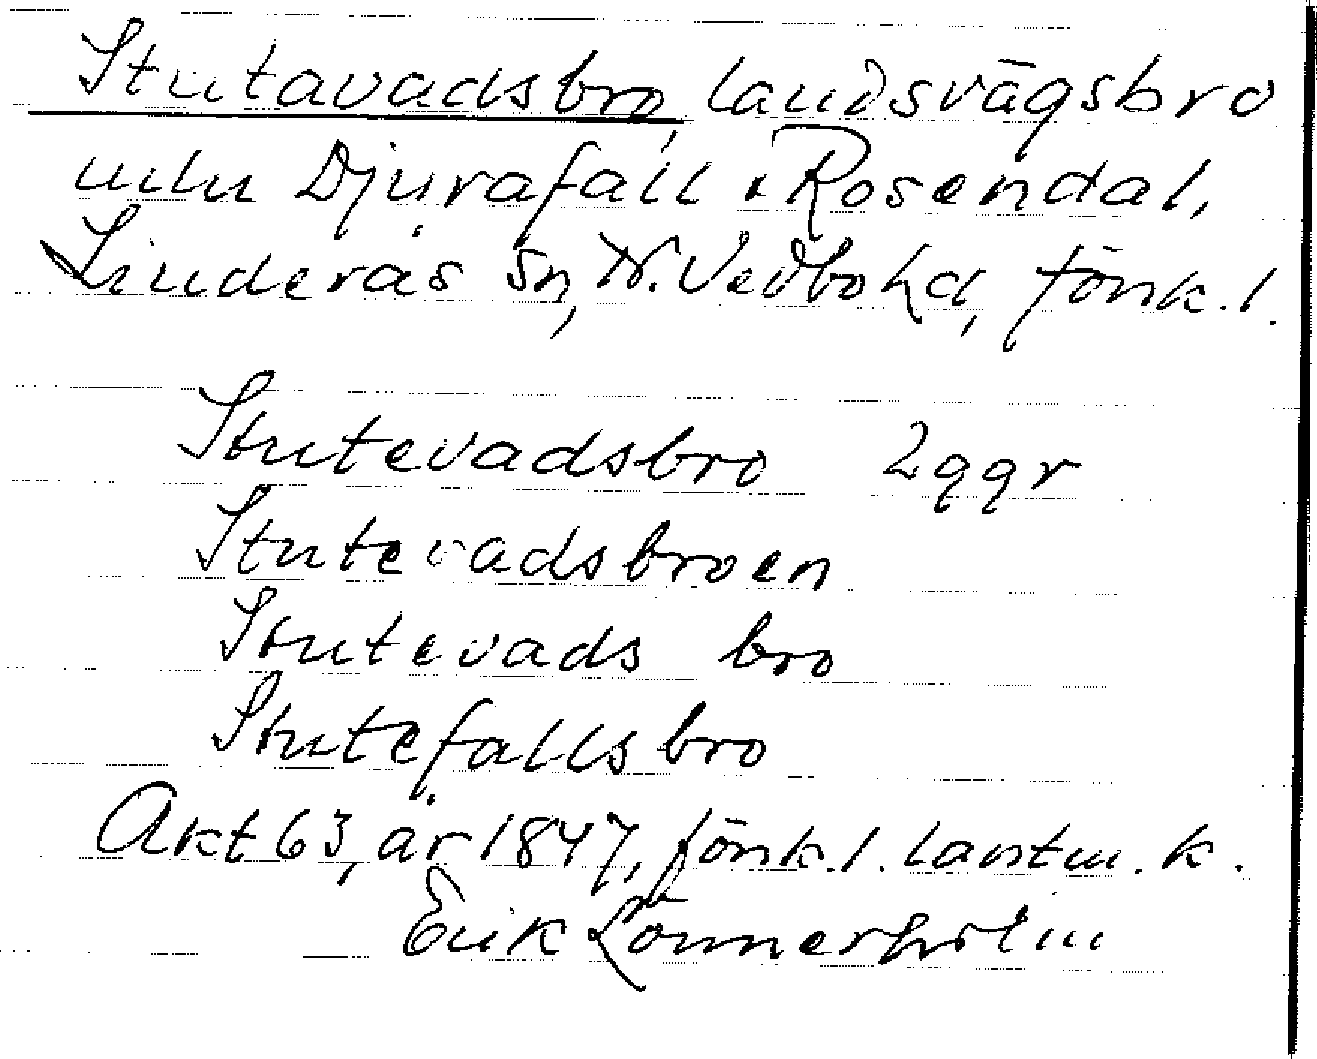 Stutavadsbro, landsvägsbro
mln Djurafall o Rosendal,
Linderås sn, N. Vedbo hd, Jönk. l.
Stutevadsbro 2 ggr
Stutevadsbroen
Stutevads bro
Stutefallsbro
Akt 63, år 1847, Jönk. l. lantm. k.
Erik Lönnerholm